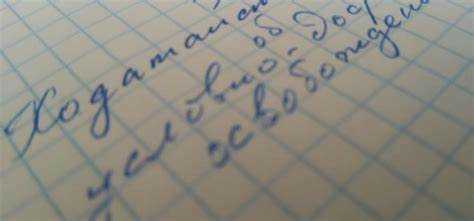 Ходатайст
об
условно-дос
освобождени